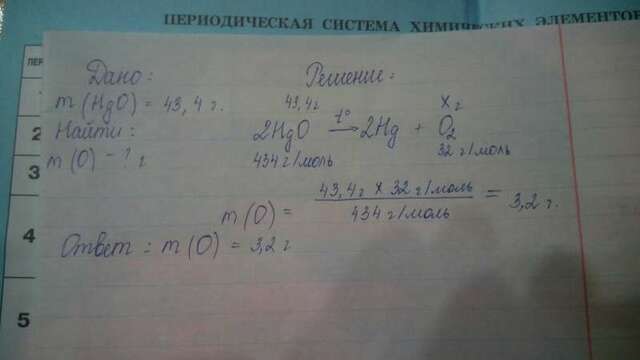 ПЕРИОДИЧЕСКАЯ СИСТЕМА ХИМИЧЕСКИХ ЭЛЕМЕНТОВ
ПЕР
2
3
4
5
Дано:
m (HgO) = 43,4 г.
Найти:
m (O) - ? г
Решение:
43,4г X г
2HgO →t° 2Hg + O2
434 г/моль 32 г/моль
m(O) = 43,4г X 32 г/моль / 434 г/моль = 3,2 г.
Ответ: m (O) = 3,2 г